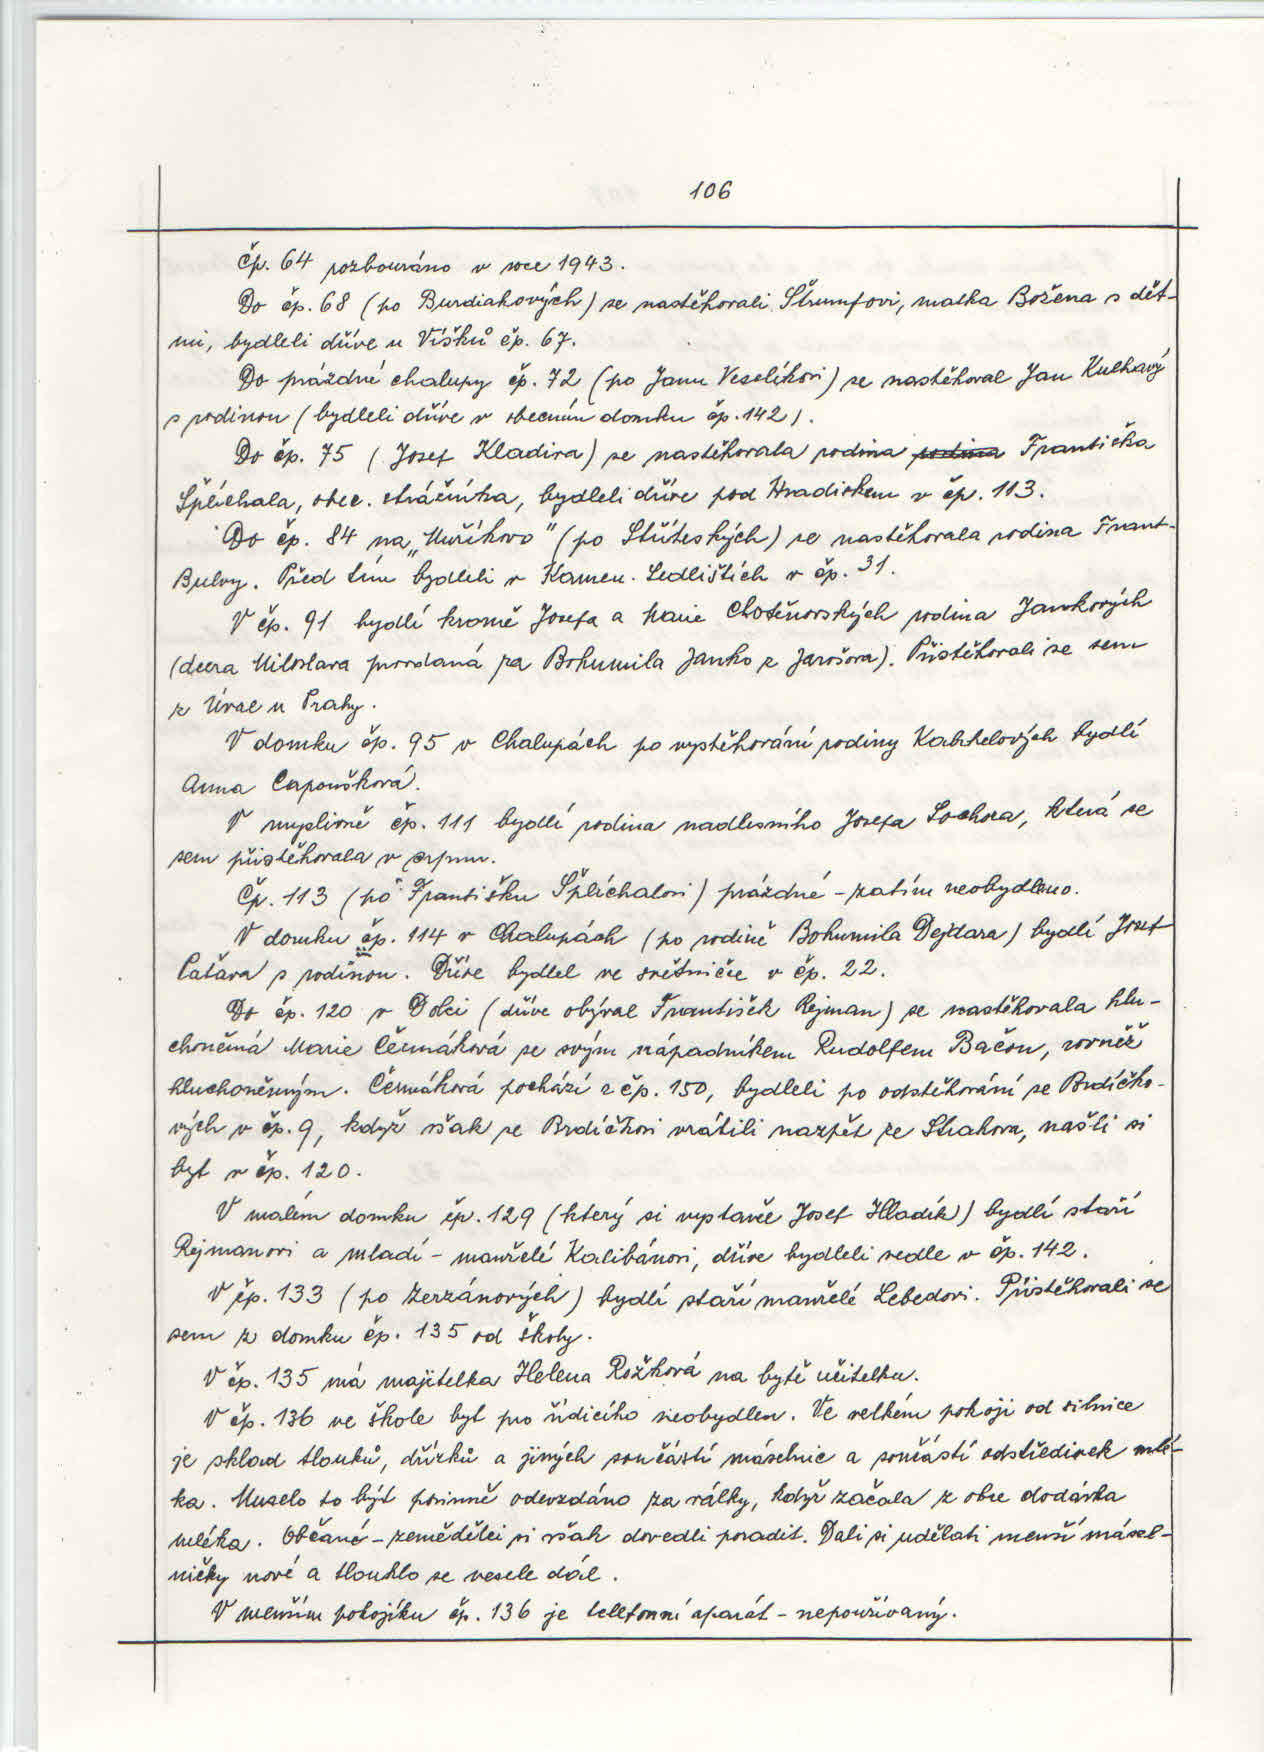 106
Čp. 64 rozbouráno v roce 1943.
Do čp. 68 (po Burdiakových) se nastěhovali Štrumfovi, matka Božena s dět-
mi, bydleli dříve u Víšků čp. 67.
Do prázdné chalupy čp. 72 (po Janu Veselíkovi) se nastěhoval Jan Kulhavý
s rodinou (bydleli dříve v obecním domku čp. 142).
Do čp. 75 (Josef Kladiva) se nastěhovala rodina rodina Františka
Šplíchala, obec. strážníka, bydleli dříve pod Hradiskem v čp. 113.
Do čp. 84 na „Muříkovo" (po Stříteských) se nastěhovala rodina Frant.
Bulvy. Před tím bydleli v Kamen. Sedlištích v čp. 31.
V čp. 91 bydlí kromě Josefa a Marie Chotěnovských rodina Jankových
(dcera Miloslava provdaná za Bohumila Janko z Jarošova). Přistěhovali se sem
z Úval u Prahy.
V domku čp. 95 v Chalupách po vystěhování rodiny Kabrhelových bydlí
Anna Capoušková.
V myslivně čp. 111 bydlí rodina nadlesního Josefa Sochora, která se
sem přistěhovala v srpnu.
Čp. 113 (po Františku Šplíchalovi) prázdné - zatím neobydleno.
V domku čp. 114 v Chalupách (po rodině Bohumila Dejdara) bydlí Josef
Pačava s rodinou. Dříve bydlel ve světničce v čp. 22.
Do čp. 120 v Dolci (dříve obýval František Rejman) se nastěhovala hlu-
choněmá Marie Čermáková se svým nápadníkem Rudolfem Bačou, rovněž
hluchoněmým. Čermáková pochází z čp. 150, bydleli po odstěhování se Brdíčko-
vých v čp. 9, když však se Brdíčkovi vrátili nazpět ze Strakova, našli si
byt v čp. 120.
V malém domku čp. 129 (který si vystavěl Josef Hladík) bydlí staří
Rejmanovi a mladí - manželé Kalibánovi, dříve bydleli vedle v čp. 142.
V čp. 133 (po Zerzánových) bydlí staří manželé Lebedovi. Přistěhovali se
sem z domku čp. 135 od školy.
V čp. 135 má majitelka Helena Rožková na bytě učitelku.
V čp. 136 ve škole byt pro řídícího neobydlen. Ve velkém pokoji od silnice
je sklad tlouků, dřízků a jiných součástí máselnic a součástí odstředivek mlé-
ka. Muselo to být povinně odevzdáno za války, když začala z obce dodávka
mléka. Občané - zemědělci si však dovedli poradit. Dali si udělati menší másel-
ničky nové a tlouklo se vesele dál.
V menším pokojíku čp. 136 je telefonní aparát - nepoužívaný.